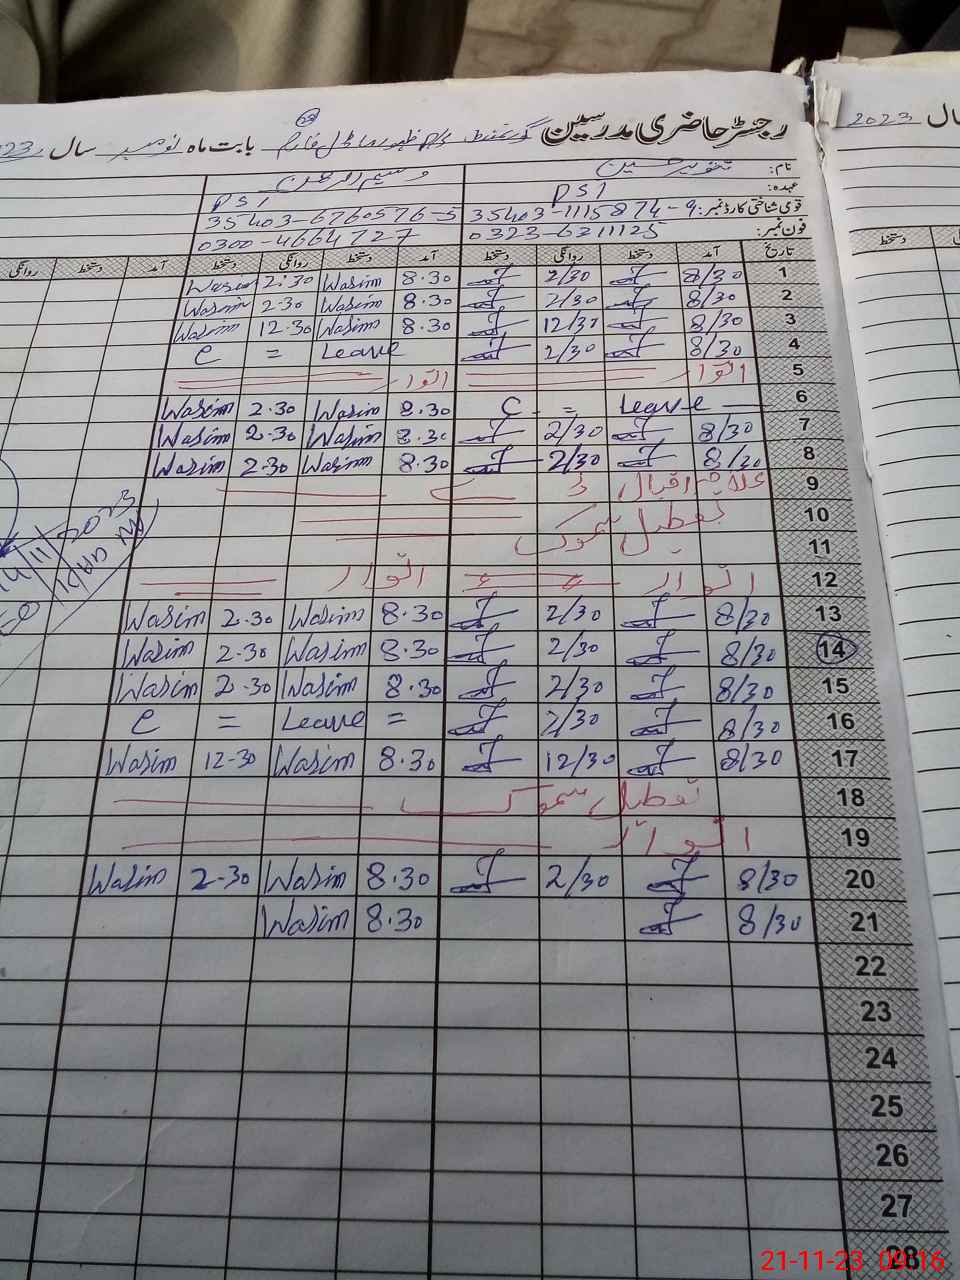 رجسٹر حاضری مدرسین گورنمنٹ بابت ماہ نومبر سال 2023
نام: تنویر حسین
عہدہ: PST PST
قومی شناختی کارڈ نمبر: 35403-1115874-9 35403-6760576-5
فون نمبر: 0323-6211125 0300-4664727
تاریخ آمد دستخط روانگی دستخط آمد دستخط روانگی دستخط آمد دستخط روانگی
1 8/30 2/30 8.30 Wasim 2.30 Wasim
2 8/30 2/30 8.30 Wasim 2.30 Wasim
3 8/30 12/30 8.30 Wasim 12.30 Wasim
4 8/30 2/30 Leave = C
5 اتوار اتوار
6 Leave = C 8.30 Wasim 2.30 Wasim
7 8/30 2/30 8.30 Wasim 2.30 Wasim
8 8/30 2/30 8.30 Wasim 2.30 Wasim
9 علامہ اقبال ڈے
10 تعطیل سموگ
11
12 اتوار اتوار
13 8/30 2/30 8.30 Wasim 2.30 Wasim
14 8/30 2/30 8.30 Wasim 2.30 Wasim
15 8/30 2/30 8.30 Wasim 2.30 Wasim
16 8/30 2/30 = Leave = C
17 8/30 12/30 8.30 Wasim 12-30 Wasim
18 تعطیل سموگ
19 اتوار
20 8/30 2/30 8.30 Wasim 2-30 Wasim
21 8/30 8.30 Wasim
22
23
24
25
26
27
28
14/11/2023
سال 2023
دستخط
21-11-23 09:16